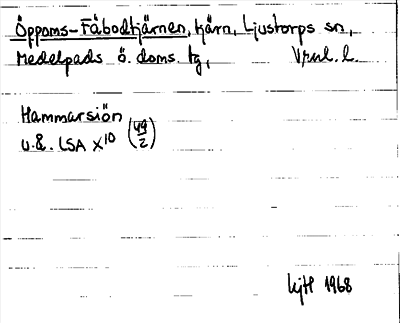 Öppoms-Fäbodtjärnen, tjärn, Ljustorps sn,
Medelpads ö. doms. tg, Vrnl. l.
Hammarsjön
u.å. LSA X10 (49/2)
1968